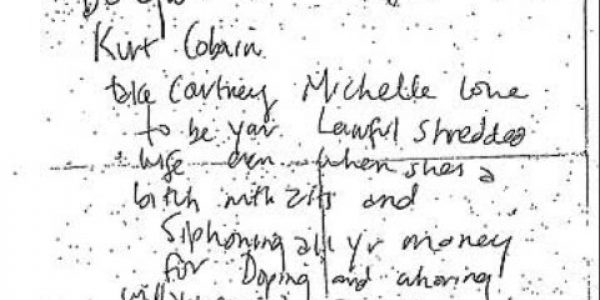 Do you
Kurt Cobain
take Cortney Michelle Love
to be your Lawful shredded
wife even when shes a
bitch with zits and
siphoning all yr money
for Doping and whoring
will you